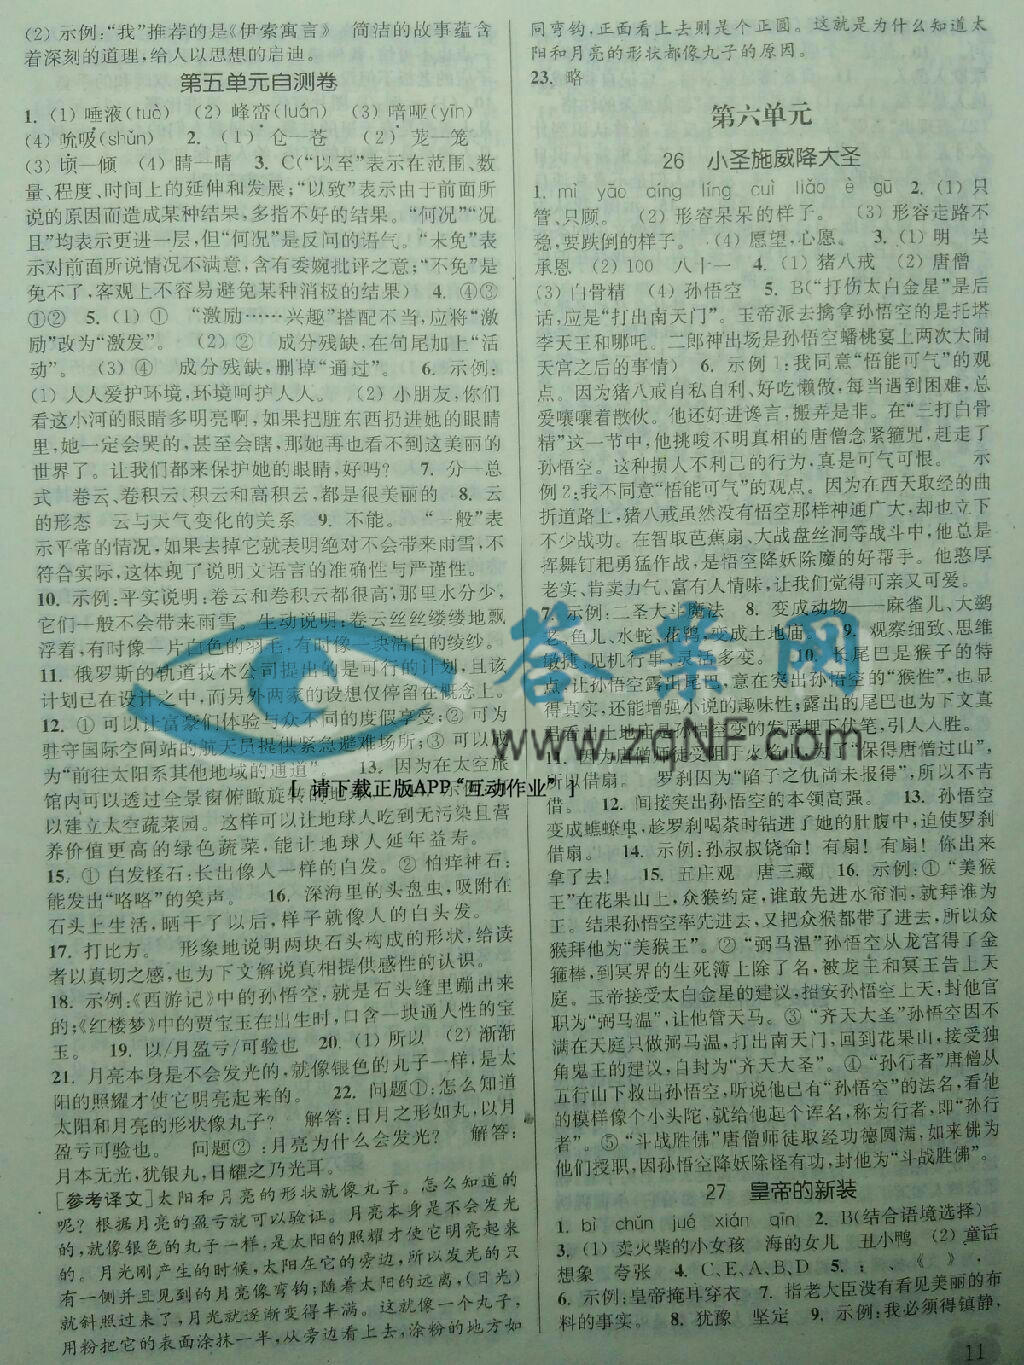 (2) 示例:“我”推荐的是《伊索寓言》　简洁的故事蕴含
着深刻的道理,给人以思想的启迪。
第五单元自测卷
1. (1) 唾液(tuò)　(2) 峰峦(luán)　(3) 喑哑(yīn)
(4) 吮吸(shǔn)　2. (1) 仓—苍　(2) 茏—笼
(3) 顷—倾　(4) 睛—晴　3. C(“以至”表示在范围、数
量、程度、时间上的延伸和发展;“以致”表示由于前面所
说的原因而造成某种结果,多指不好的结果。“何况”“况
且”均表示更进一层,但“何况”是反问的语气。“未免”表
示对前面所说情况不满意,含有委婉批评之意;“不免”是
免不了,客观上不容易避免某种消极的结果)　4. ④③
①②　5. (1) ①　“激励……兴趣”搭配不当,应将“激
励”改为“激发”。　(2) ②　成分残缺,在句尾加上“活
动”。　(3) ④　成分残缺,删掉“通过”。　6. 示例:
(1) 人人爱护环境,环境呵护人人。　(2) 小朋友,你们
看这小河的眼睛多明亮啊,如果把脏东西扔进她的眼睛
里,她一定会哭的,甚至会瞎,那她再也看不到这美丽的
世界了。让我们都来保护她的眼睛,好吗?　7. 分—总
式　卷云、卷积云、积云和高积云,都是很美丽的　8. 云
的形态　云与天气变化的关系　9. 不能。　“一般”表
示平常的情况,如果去掉它就表明绝对不会带来雨雪,不
符合实际,这体现了说明文语言的准确性与严谨性。
10. 示例:平实说明:卷云和卷积云都很高,那里水分少,
它们一般不会带来雨雪。　生动说明:卷云丝丝缕缕地飘
浮着,有时像一片白色的羽毛,有时像一块洁白的绫纱。
11. 俄罗斯的轨道技术公司提出的是可行的计划,且该
计划已在设计之中,而另外两家的设想仅停留在概念上。
12. ① 可以让富豪们体验与众不同的度假享受;② 可为
驻守国际空间站的航天员提供紧急避难场所;③ 可以成
为“前往太阳系其他地域的通道”　13. 因为在太空旅
馆内可以透过全景窗俯瞰旋转的地球
以建立太空蔬菜园。这样可以让地球人吃到无污染且营
养价值更高的绿色蔬菜,能让地球人延年益寿。
15. ① 白发怪石:长出像人一样的白发。② 怕痒神石:
能发出“咯咯”的笑声。　16. 深海里的头盘虫,吸附在
石头上生活,晒干了以后,样子就像人的白头发。
17. 打比方。　形象地说明两块石头构成的形状,给读
者以真切之感,也为下文解说真相提供感性的认识。
18. 示例:《西游记》中的孙悟空,就是石头缝里蹦出来
的;《红楼梦》中的贾宝玉在出生时,口含一块通人性的宝
玉。　19. 以/月盈亏/可验也　20. (1) 所以　(2) 渐渐
21. 月亮本身是不会发光的,就像银色的丸子一样,是太
阳的照耀才使它明亮起来的。　22. 问题①:怎么知道
太阳和月亮的形状像丸子?　解答:日月之形如丸,以月
盈亏可验也。　问题②:月亮为什么会发光?　解答:
月本无光,犹银丸,日耀之乃光耳。
[参考译文]太阳和月亮的形状就像丸子。怎么知道的
呢?根据月亮的盈亏就可以验证。月亮本身是不会发光
的,就像银色的丸子一样,是太阳的照耀才使它明亮起来
的。月光刚产生的时候,太阳在它的旁边,所以发光的只
有一侧并且见到的月亮像弯钩;随着太阳的远离,(日光)
就斜照过来了,月亮就逐渐变得丰满。这就像一个丸子,
用粉把它的表面涂抹一半,从旁边看上去,涂粉的地方如
同弯钩,正面看上去则是个正圆。这就是为什么知道太
阳和月亮的形状都像丸子的原因。
23. 略
第六单元
26　小圣施威降大圣
1. mì　yāo　cíng　líng　cuì　liǎo　è　gū　2. (1) 只
管、只顾。　(2) 形容呆呆的样子。　(3) 形容走路不
稳,要跌倒的样子。　(4) 愿望,心愿。　3. (1) 明　吴
承恩　(2) 100　八十一　4. (1) 猪八戒　(2) 唐僧
(3) 白骨精　(4) 孙悟空　5. B(“打伤太白金星”是后
话,应是“打出南天门”。玉帝派去擒拿孙悟空的是托塔
李天王和哪吒。二郎神出场是孙悟空蟠桃宴上两次大闹
天宫之后的事情)　6. 示例1:我同意“悟能可气”的观
点。因为猪八戒自私自利、好吃懒做,每当遇到困难,总
爱嚷嚷着散伙。他还好进谗言,搬弄是非。在“三打白骨
精”这一节中,他挑唆不明真相的唐僧念紧箍咒,赶走了
孙悟空。这种损人不利己的行为,真是可气可恨。　示
例2:我不同意“悟能可气”的观点。因为在西天取经的曲
折道路上,猪八戒虽然没有悟空那样神通广大,却也立下
不少战功。在智取芭蕉扇、大战盘丝洞等战斗中,他总是
挥舞钉耙勇猛作战,是悟空降妖除魔的好帮手。他憨厚
老实,肯卖力气,富有人情味,让我们觉得可亲又可爱。
7. 示例:二圣大斗魔法　8. 变成动物——麻雀儿、大鹚
老、鱼儿、水蛇、花鸨　变成土地庙　9. 观察细致、思维
敏捷、见机行事、灵活多变。　10. 长尾巴是猴子的特
点,让孙悟空露出尾巴,意在突出孙悟空的“猴性”,也显
得真实,还能增强小说的趣味性;露出的尾巴也为下文真
君看出土地庙是孙悟空变的发展埋下伏笔,引人入胜。
11. 因为唐僧师徒受阻于火焰山,为了“保得唐僧过山”,
所以借扇。　罗刹因为“陷子之仇尚未报得”,所以不肯
借扇。　12. 间接突出孙悟空的本领高强。　13. 孙悟空
变成蟭蟟虫,趁罗刹喝茶时钻进了她的肚腹中,迫使罗刹
借扇。　14. 示例:孙叔叔饶命!有扇!有扇!你出来
拿了去!　15. 五庄观　唐三藏　16. 示例:①“美猴
王”在花果山上,众猴约定,谁敢先进水帘洞,就拜谁为
王。结果孙悟空率先进去,又把众猴都带了进去,所以众
猴拜他为“美猴王”。②“弼马温”孙悟空从龙宫得了金
箍棒,到冥界的生死簿上除了名,被龙王和冥王告上天
庭。玉帝接受太白金星的建议,招安孙悟空上天,封他官
职为“弼马温”,让他管天马。③“齐天大圣”孙悟空因不
满在天庭只做弼马温,打出南天门,回到花果山,接受独
角鬼王的建议,自封为“齐天大圣”。④“孙行者”唐僧从
五行山下救出孙悟空,听说他已有“孙悟空”的法名,看他
的模样像个小头陀,就给他起个诨名,称为行者,即“孙行
者”。⑤“斗战胜佛”唐僧师徒取经功德圆满,如来佛为
他们授职,因孙悟空降妖除怪有功,封他为“斗战胜佛”。
27　皇帝的新装
1. bì　chǔn　jué　xián　qīn　2. B(结合语境选择)
3. (1) 卖火柴的小女孩　海的女儿　丑小鸭　(2) 童话
想象　夸张　4. C、E、A、B、D　5. :、《　》.
6. 示例:皇帝掩耳穿衣　7. 指老大臣没有看见美丽的布
料的事实。　8. 犹豫　坚定　9. 示例:我必须得镇静,
11
答案网
www.zqNF.com
[ 请下载正版APP“互动作业” ]